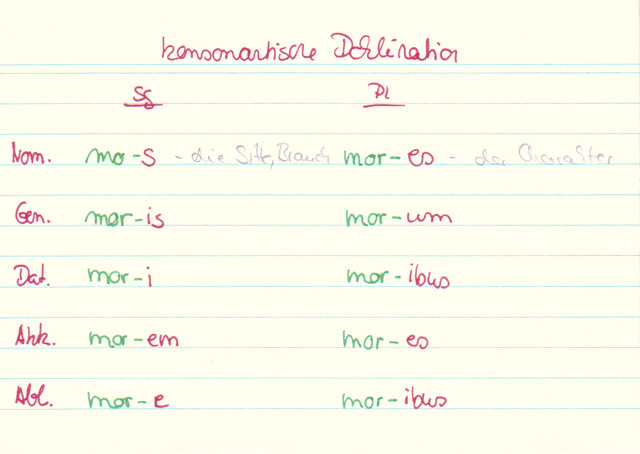 konsonantische Deklination
Sg Pl
Nom. mo-s - die Sitte, Brauch mor-es - der Charakter
Gen. mor-is mor-um
Dat. mor-i mor-ibus
Akk. mor-em mor-es
Abl. mor-e mor-ibus